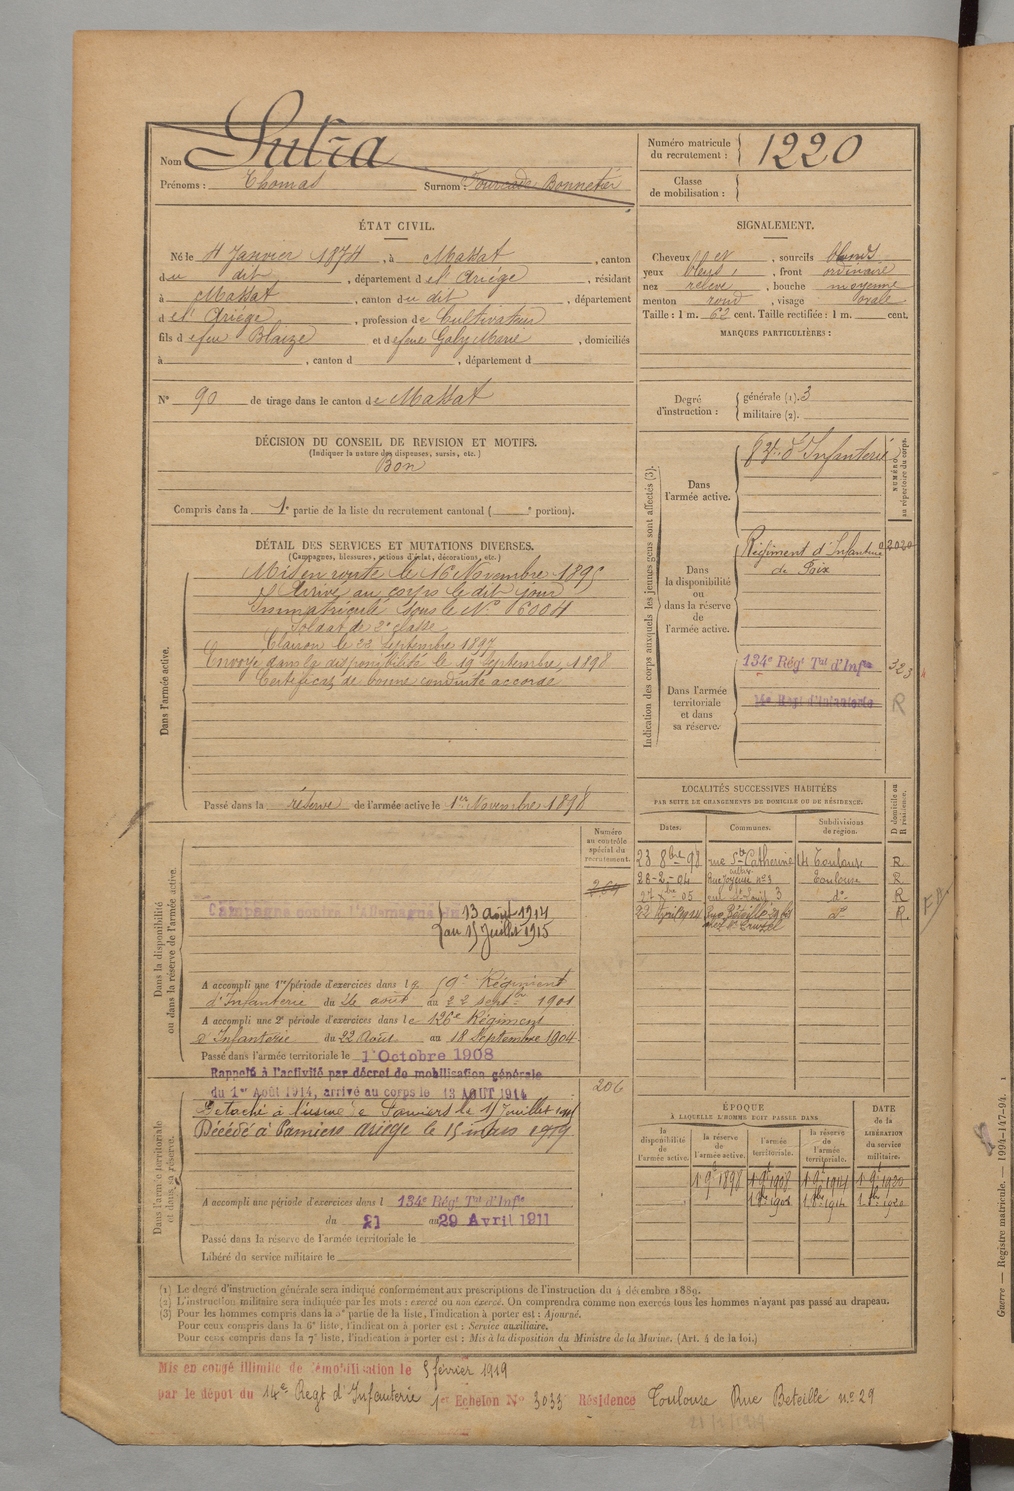 Nom Sutra
Prénoms : Thomas Surnom : Bonnetier
Numéro matricule du recrutement : 1220
Classe de mobilisation :
ÉTAT CIVIL.
Né le 4 Janvier 1874, à Massat, canton
du dit, département de l'Ariège, résidant
à Massat, canton du dit, département
de l'Ariège, profession de Cultivateur
fils de feu Blaize et de feue Galy Marie, domiciliés
à , canton d , département d
N° 90 de tirage dans le canton de Massat
DÉCISION DU CONSEIL DE REVISION ET MOTIFS.
(Indiquer la nature des dispenses, sursis, etc.)
Bon
Compris dans la 1e partie de la liste du recrutement cantonal ( e portion).
SIGNALEMENT.
Cheveux et , sourcils blonds
yeux bleus, , front ordinaire
nez relevé , bouche moyenne
menton rond , visage ovale
Taille : 1 m. 62 cent. Taille rectifiée : 1 m. cent.
MARQUES PARTICULIÈRES :
Degré d'instruction : générale (1). 3
militaire (2).
DÉTAIL DES SERVICES ET MUTATIONS DIVERSES.
(Campagnes, blessures, actions d'éclat, décorations, etc.)
Dans l'armée active.
Mis en route le 16 Novembre 1895
Arrivé au corps le dit jour
Immatriculé sous le N° 6004
Soldat de 2e classe
Clairon le 22 Septembre 1897
Envoyé dans la disponibilité le 19 Septembre 1898
Certificat de bonne conduite accordé
Passé dans la réserve de l'armée active le 1er Novembre 1898
Indication des corps auxquels les jeunes gens sont affectés (3).
NUMÉRO au répertoire du corps.
Dans l'armée active. d'Infanterie
Dans la disponibilité ou dans la réserve de l'armée active. Régiment d'Infanterie 2020
de Foix
Dans l'armée territoriale et dans sa réserve. 134e Régt Tal d'Infie 323
14e Regt d'Infanterie R
Dans la disponibilité ou dans la réserve de l'armée active.
Numéro au contrôle spécial du recrutement.
Campagne contre l'Allemagne du 13 août 1914
au 15 Juillet 1915
A accompli une 1re période d'exercices dans le 59e Régiment
d'Infanterie du 26 août au 22 septbre 1901
A accompli une 2e période d'exercices dans le 126e Régiment
d'Infanterie du 22 Août au 18 Septembre 1904
Passé dans l'armée territoriale le 1 Octobre 1908
Rappelé à l'activité par décret de mobilisation générale
du 1er Août 1914, arrivé au corps le 13 AOUT 1914
206
Dans l'armée territoriale et dans sa réserve.
Détaché à l'usine de Pamiers le 15 Juillet
Décédé à Pamiers Ariège le 15 mars 1919
A accompli une période d'exercices dans l 134e Régt Tal d'Infie
du 21 au 29 Avril 1911
Passé dans la réserve de l'armée territoriale le
Libéré du service militaire le
LOCALITÉS SUCCESSIVES HABITÉES
PAR SUITE DE CHANGEMENTS DE DOMICILE OU DE RÉSIDENCE.
Dates. Communes. Subdivisions de région. D domicile ou R résidence.
23 8bre 98 rue Ste Catherine 14 Toulouse R
28-2-04 Rue Joyeuse n° 3 Toulouse R
27 05 3 do R
22 Avril Rue Béteille 29 do R
ÉPOQUE
À LAQUELLE L'HOMME DOIT PASSER DANS
DATE de la LIBÉRATION du service militaire.
la disponibilité de l'armée active. la réserve de l'armée active. l'armée territoriale. la réserve de l'armée territoriale.
1 9e 1898 1 9e 1908 1 9e 1914 1 9e 1920
(1) Le degré d'instruction générale sera indiqué conformément aux prescriptions de l'instruction du 4 décembre 1889.
(2) L'instruction militaire sera indiquée par les mots : exercé ou non exercé. On comprendra comme non exercés tous les hommes n'ayant pas passé au drapeau.
(3) Pour les hommes compris dans la 5e partie de la liste, l'indication à porter est : Ajourné.
Pour ceux compris dans la 6e liste, l'indication à porter est : Service auxiliaire.
Pour ceux compris dans la 7e liste, l'indication à porter est : Mis à la disposition du Ministre de la Marine. (Art. 4 de la loi.)
Mis en congé illimité de démobilisation le 5 février 1919
par le dépôt du 14e Regt d'Infanterie 1er Echelon N° 3033 Résidence Toulouse Rue Beteille n° 29
Guerre — Registre matricule. — 1994-147-94.